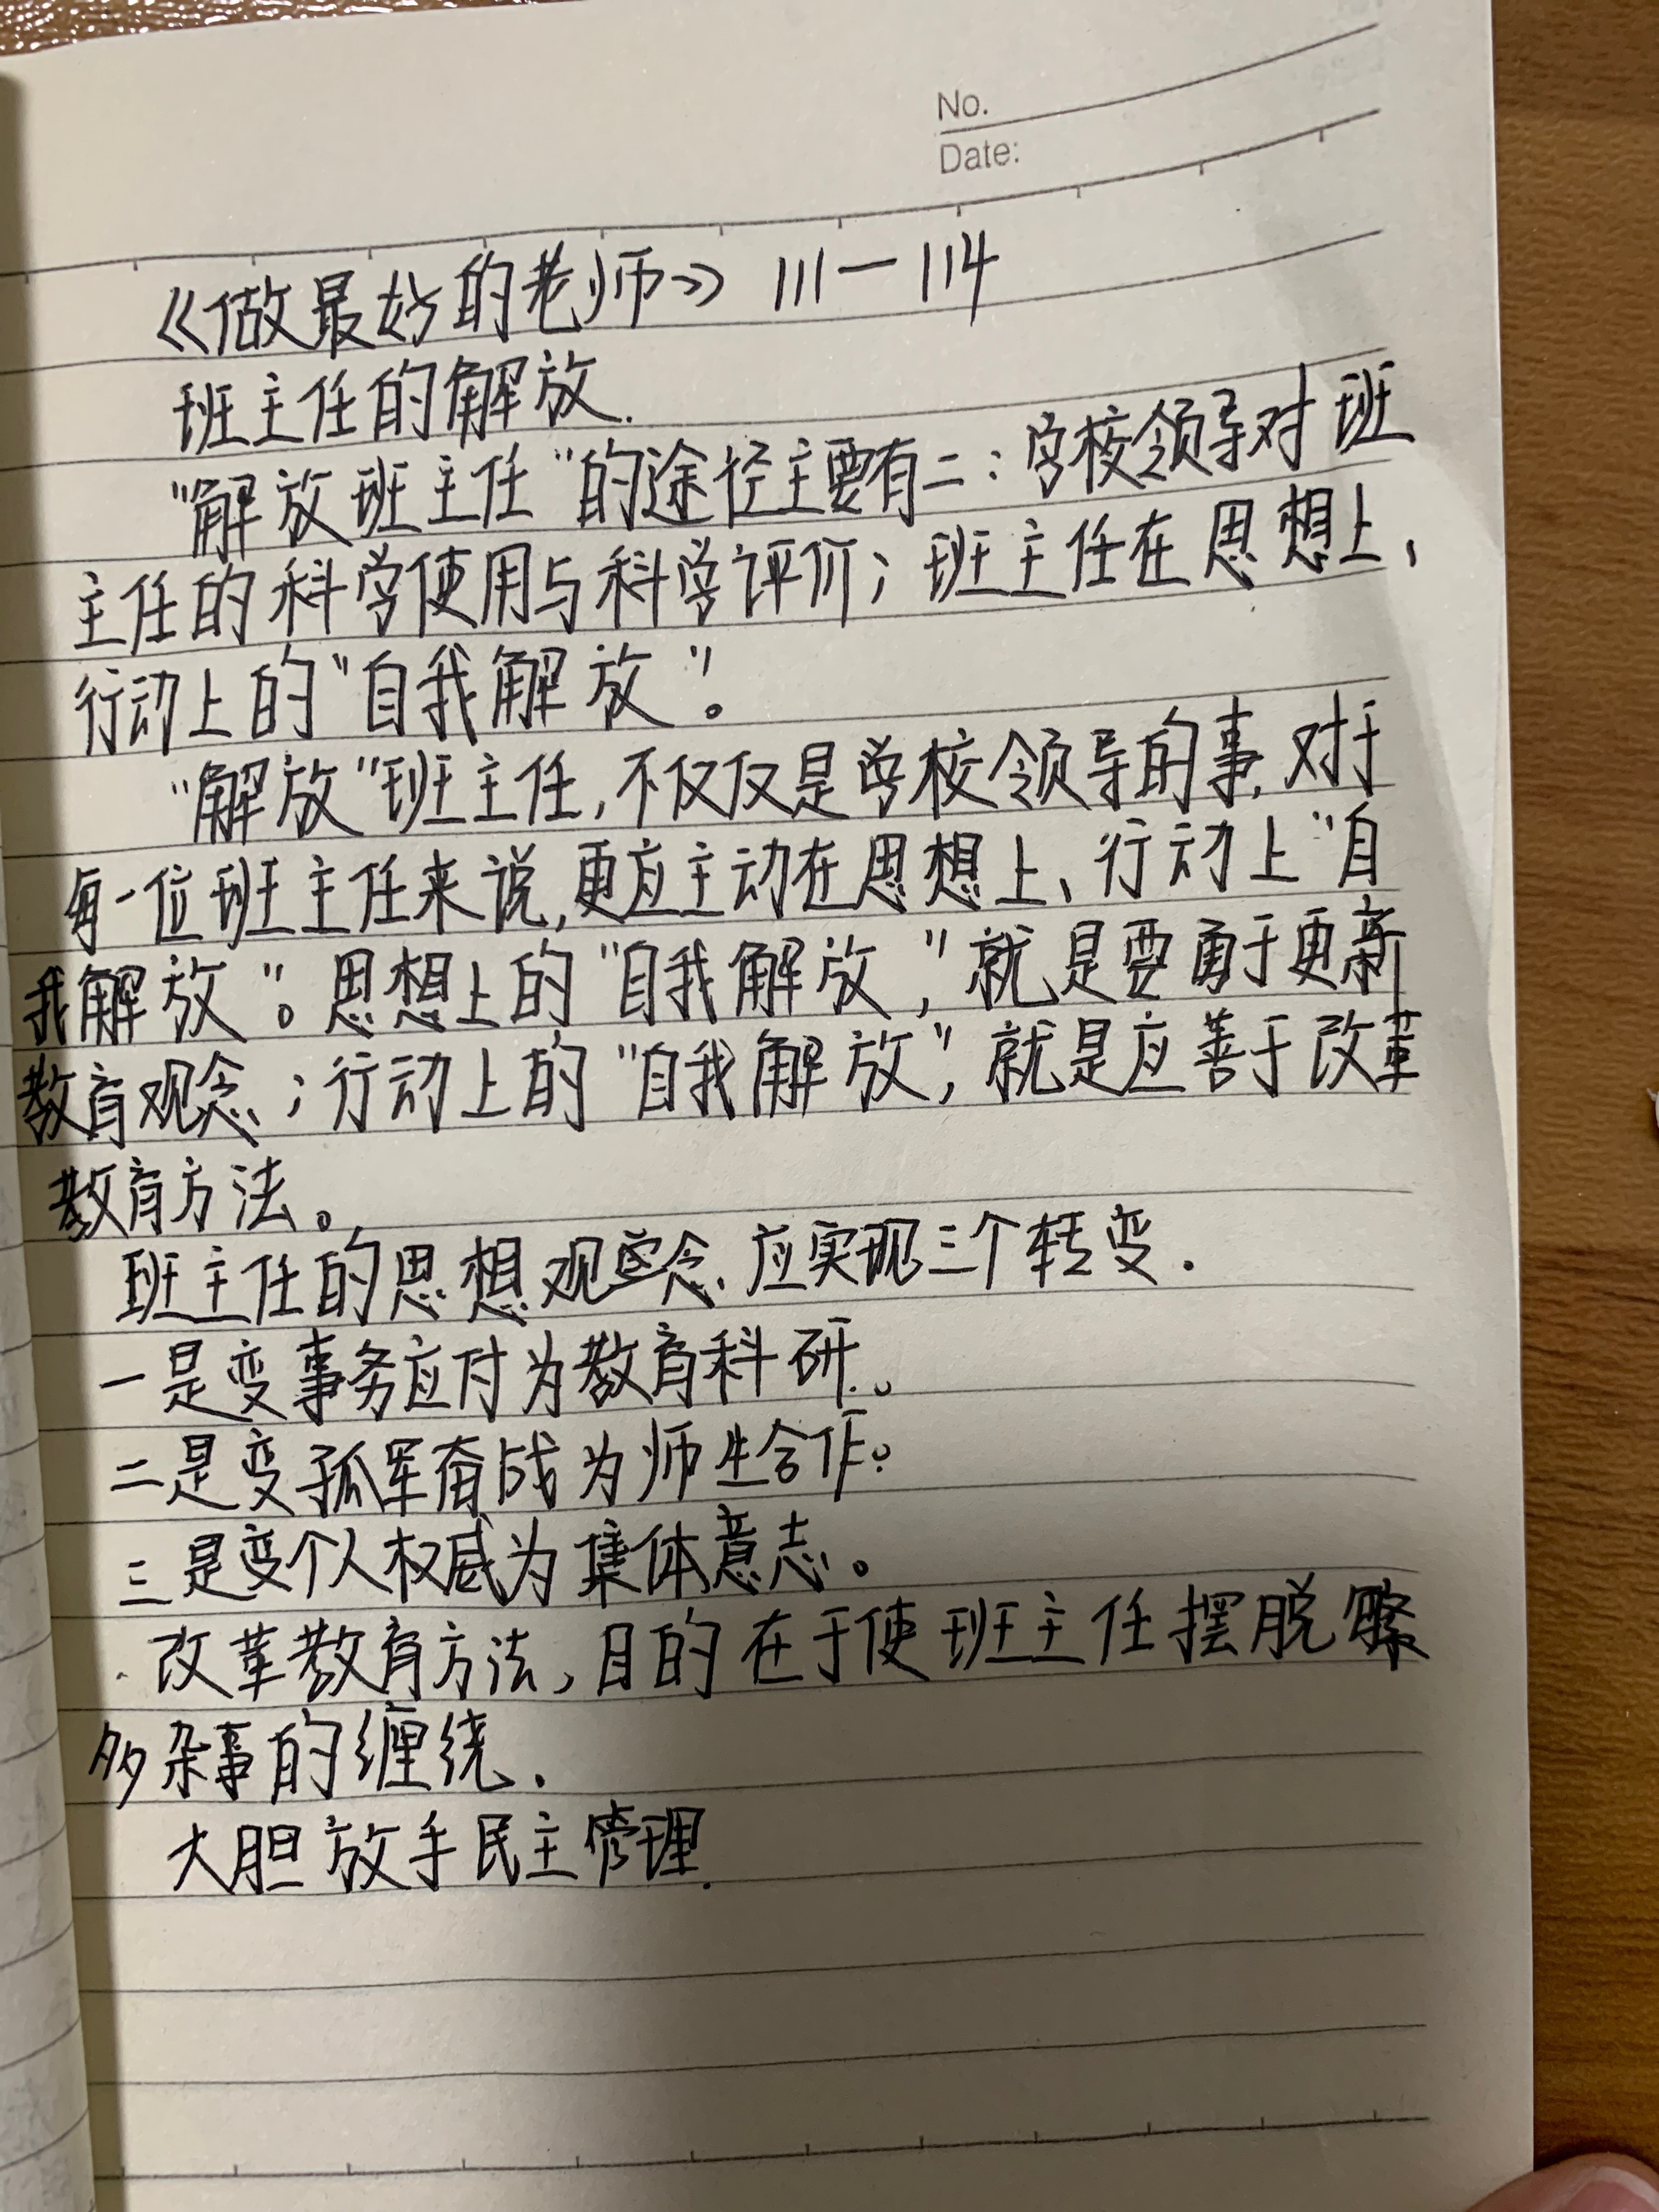 No.
Date:
《做最好的老师》 111—114
班主任的解放.
"解放班主任"的途径主要有二:学校领导对班
主任的科学使用与科学评价;班主任在思想上、
行动上的"自我解放"。
"解放"班主任,不仅仅是学校领导的事,对于
每一位班主任来说,更应主动在思想上、行动上"自
我解放"。思想上的"自我解放,"就是要勇于更新
教育观念;行动上的"自我解放",就是应善于改革
教育方法。
班主任的思想观念,应实现三个转变.
一是变事务应付为教育科研。
二是变孤军奋战为师生合作。
三是变个人权威为集体意志。
改革教育方法,目的在于使班主任摆脱
多杂事的缠绕.
大胆放手民主管理.